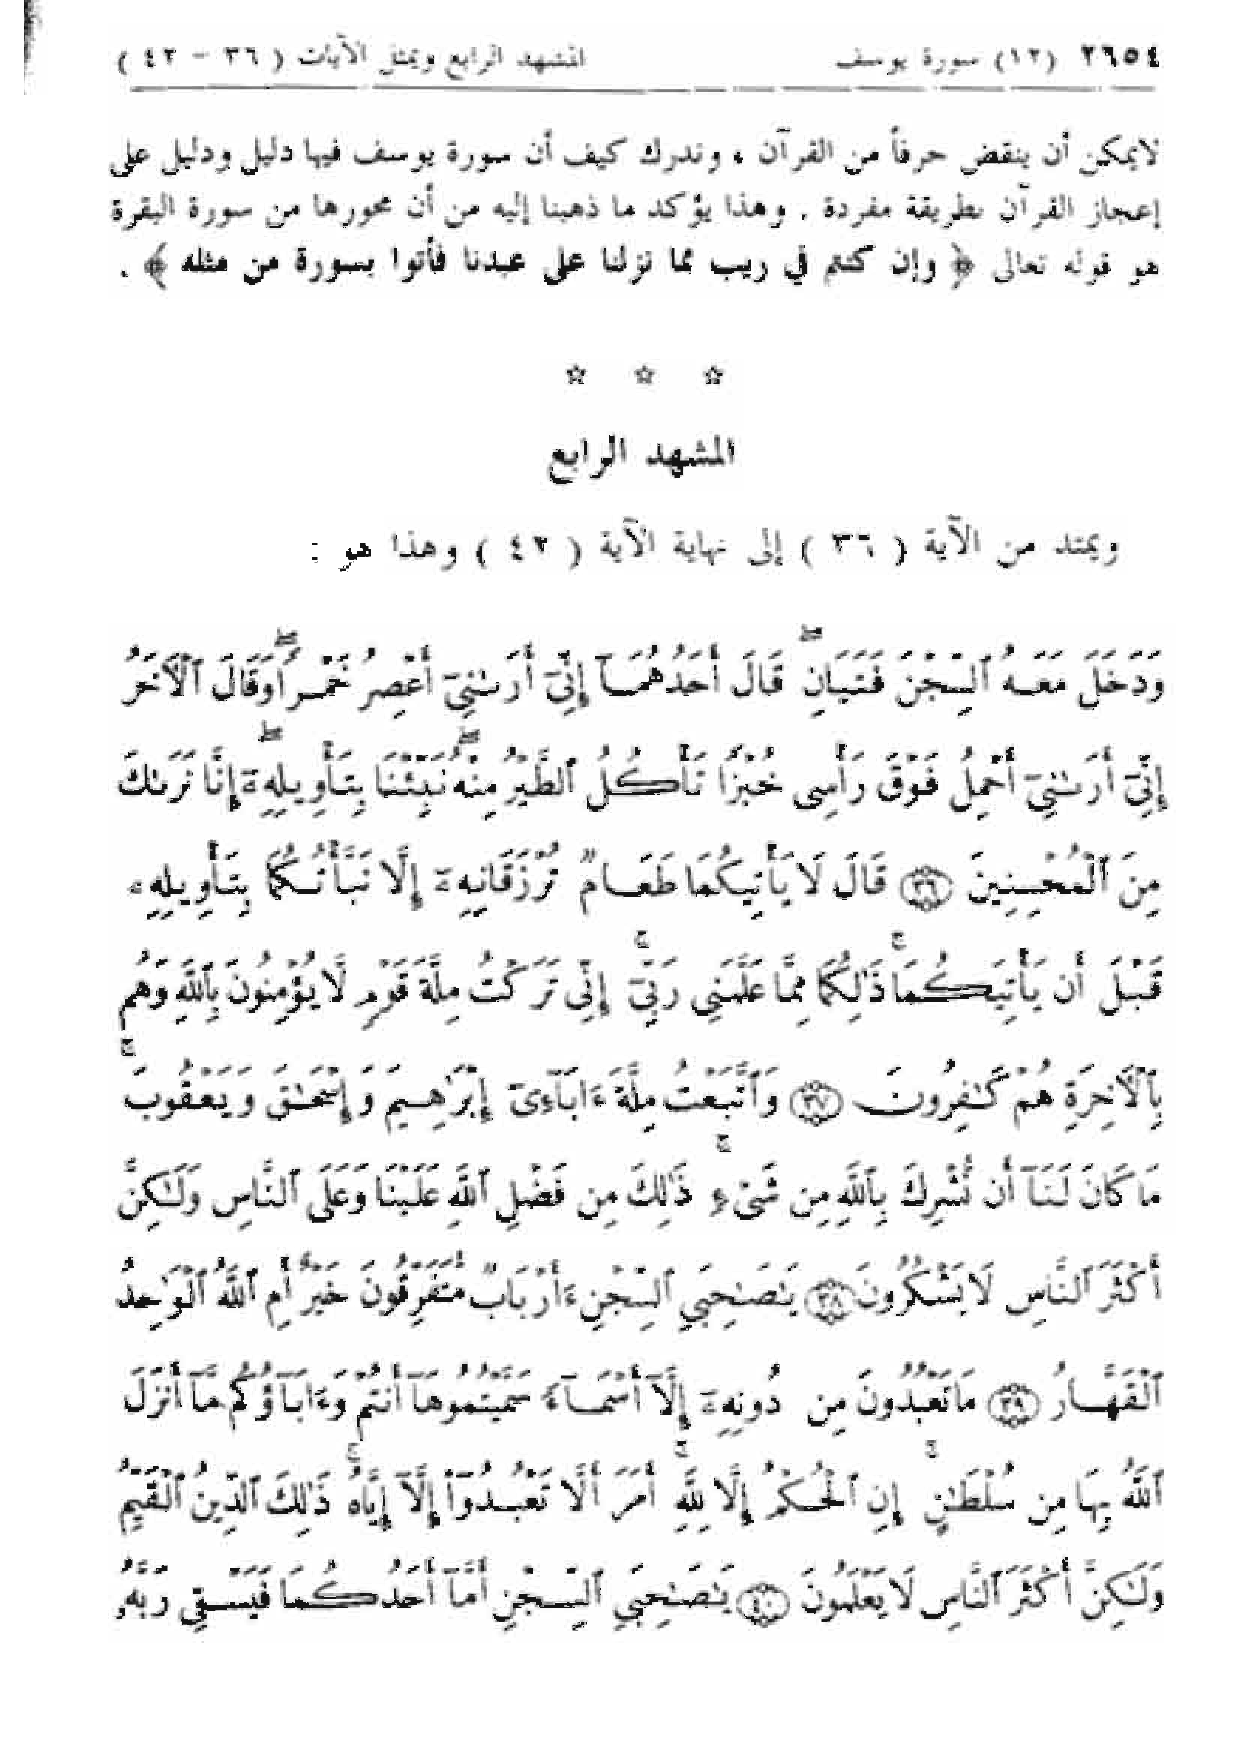 ٢٦٥٤ (١٢) سورة يوسف المشهد الرابع ويمثل الآيات ( ٣٦ – ٤٢ )
لايمكن أن ينقض حرفاً من القرآن ، وندرك كيف أن سورة يوسف فيها دليل ودليل على
إعجاز القرآن بطريقة مفردة . وهذا يؤكد ما ذهبنا إليه من أن محورها من سورة البقرة
هو قوله تعالى ﴿ وإن كنتم في ريب مما نزلنا على عبدنا فأتوا بسورة من مثله ﴾ .
☆ ☆ ☆
المشهد الرابع
ويمتد من الآية ( ٣٦ ) إلى نهاية الآية ( ٤٢ ) وهذا هو :
وَدَخَلَ مَعَهُ ٱلسِّجْنَ فَتَيَانِۖ قَالَ أَحَدُهُمَآ إِنِّىٓ أَرَىٰنِىٓ أَعْصِرُ خَمْرًاۖ وَقَالَ ٱلْأَخَرُ
إِنِّىٓ أَرَىٰنِىٓ أَحْمِلُ فَوْقَ رَأْسِى خُبْزًا تَأْكُلُ ٱلطَّيْرُ مِنْهُۖ نَبِّئْنَا بِتَأْوِيلِهِۦٓۖ إِنَّا نَرَىٰكَ
مِنَ ٱلْمُحْسِنِينَ ﴿٣٦﴾ قَالَ لَا يَأْتِيكُمَا طَعَامٌ تُرْزَقَانِهِۦٓ إِلَّا نَبَّأْتُكُمَا بِتَأْوِيلِهِۦ
قَبْلَ أَن يَأْتِيَكُمَاۚ ذَٰلِكُمَا مِمَّا عَلَّمَنِى رَبِّىٓۚ إِنِّى تَرَكْتُ مِلَّةَ قَوْمٍ لَّا يُؤْمِنُونَ بِٱللَّهِ وَهُم
بِٱلْأَخِرَةِ هُمْ كَٰفِرُونَ ﴿٣٧﴾ وَٱتَّبَعْتُ مِلَّةَ ءَابَآءِىٓ إِبْرَٰهِيمَ وَإِسْحَٰقَ وَيَعْقُوبَۚ
مَا كَانَ لَنَآ أَن نُّشْرِكَ بِٱللَّهِ مِن شَىْءٍۚ ذَٰلِكَ مِن فَضْلِ ٱللَّهِ عَلَيْنَا وَعَلَى ٱلنَّاسِ وَلَٰكِنَّ
أَكْثَرَ ٱلنَّاسِ لَا يَشْكُرُونَ ﴿٣٨﴾ يَٰصَٰحِبَىِ ٱلسِّجْنِ ءَأَرْبَابٌ مُّتَفَرِّقُونَ خَيْرٌ أَمِ ٱللَّهُ ٱلْوَٰحِدُ
ٱلْقَهَّارُ ﴿٣٩﴾ مَا تَعْبُدُونَ مِن دُونِهِۦٓ إِلَّآ أَسْمَآءً سَمَّيْتُمُوهَآ أَنتُمْ وَءَابَآؤُكُم مَّآ أَنزَلَ
ٱللَّهُ بِهَا مِن سُلْطَٰنٍۚ إِنِ ٱلْحُكْمُ إِلَّا لِلَّهِۚ أَمَرَ أَلَّا تَعْبُدُوٓا۟ إِلَّآ إِيَّاهُۚ ذَٰلِكَ ٱلدِّينُ ٱلْقَيِّمُ
وَلَٰكِنَّ أَكْثَرَ ٱلنَّاسِ لَا يَعْلَمُونَ ﴿٤٠﴾ يَٰصَٰحِبَىِ ٱلسِّجْنِ أَمَّآ أَحَدُكُمَا فَيَسْقِى رَبَّهُۥ